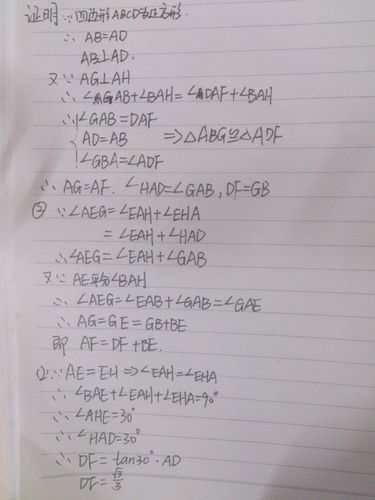 证明：∵四边形ABCD为正方形.
∴ AB=AD
AB⊥AD.
又∵ AG⊥AH
∴ ∠GAB+∠BAH=∠DAF+∠BAH
∴ ∠GAB=DAF
AD=AB ⇒△ABG≌△ADF
∠GBA=∠ADF
∴ AG=AF. ∠HAD=∠GAB, DF=GB
② ∵∠AEG=∠EAH+∠EHA
=∠EAH+∠HAD
∴∠AEG=∠EAH+∠GAB
又∵ AE平分∠BAH
∴ ∠AEG=∠EAB+∠GAB=∠GAE
∴ AG=GE=GB+BE
即 AF=DF+BE.
∵AE=EH⇒∠EAH=∠EHA
∴ ∠BAE+∠EAH+∠EHA=90°
∴ ∠AHE=30°
∴ ∠HAD=30°
∴ DF=tan30°·AD
DF=√3/3